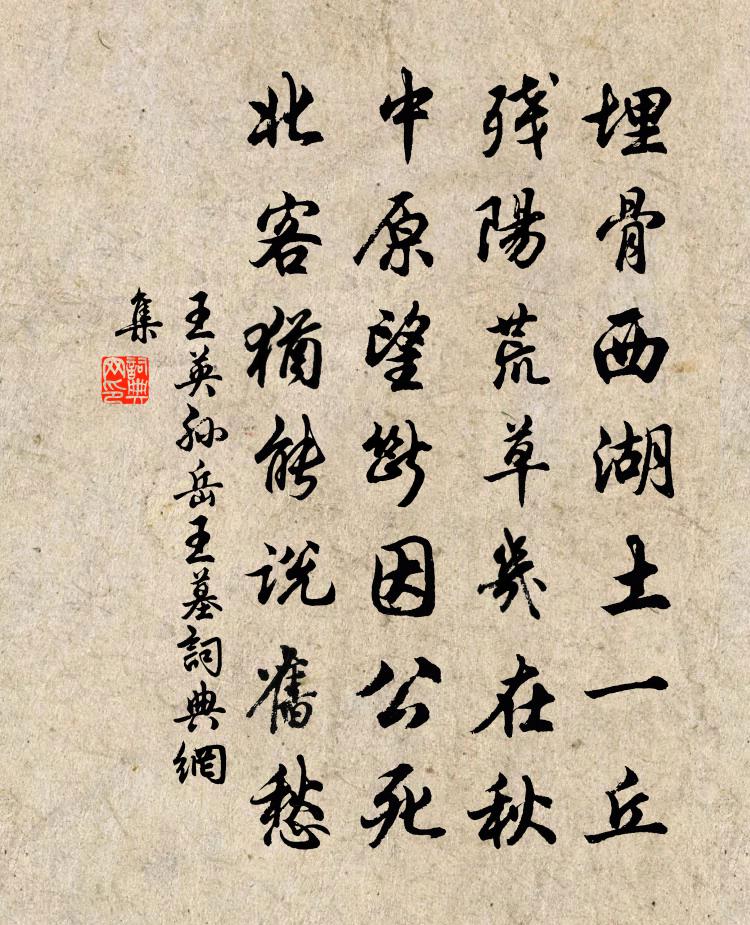 埋骨西湖土一丘
残陽荒草幾在秋
中原望斷因公死
北客猶能說舊愁
王英孫岳王墓詞典網
集
詞典網印